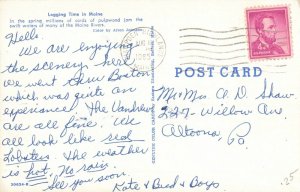 Logging Time in Maine
In the spring millions of cords of pulpwood jam the
swift waters of many of the Maine Rivers.
Color by
Hello
We are enjoying
the scenery here
We went thru Boston
which was quite an
experience. The
are all fine. We
all look like red
lobsters. The weather
is hot. No rain.
See you soon.
Kate & Bud & Boys
POST CARD
Mr & Mrs A. D. Shaw
227 Willow Av
Altoona
Pa.